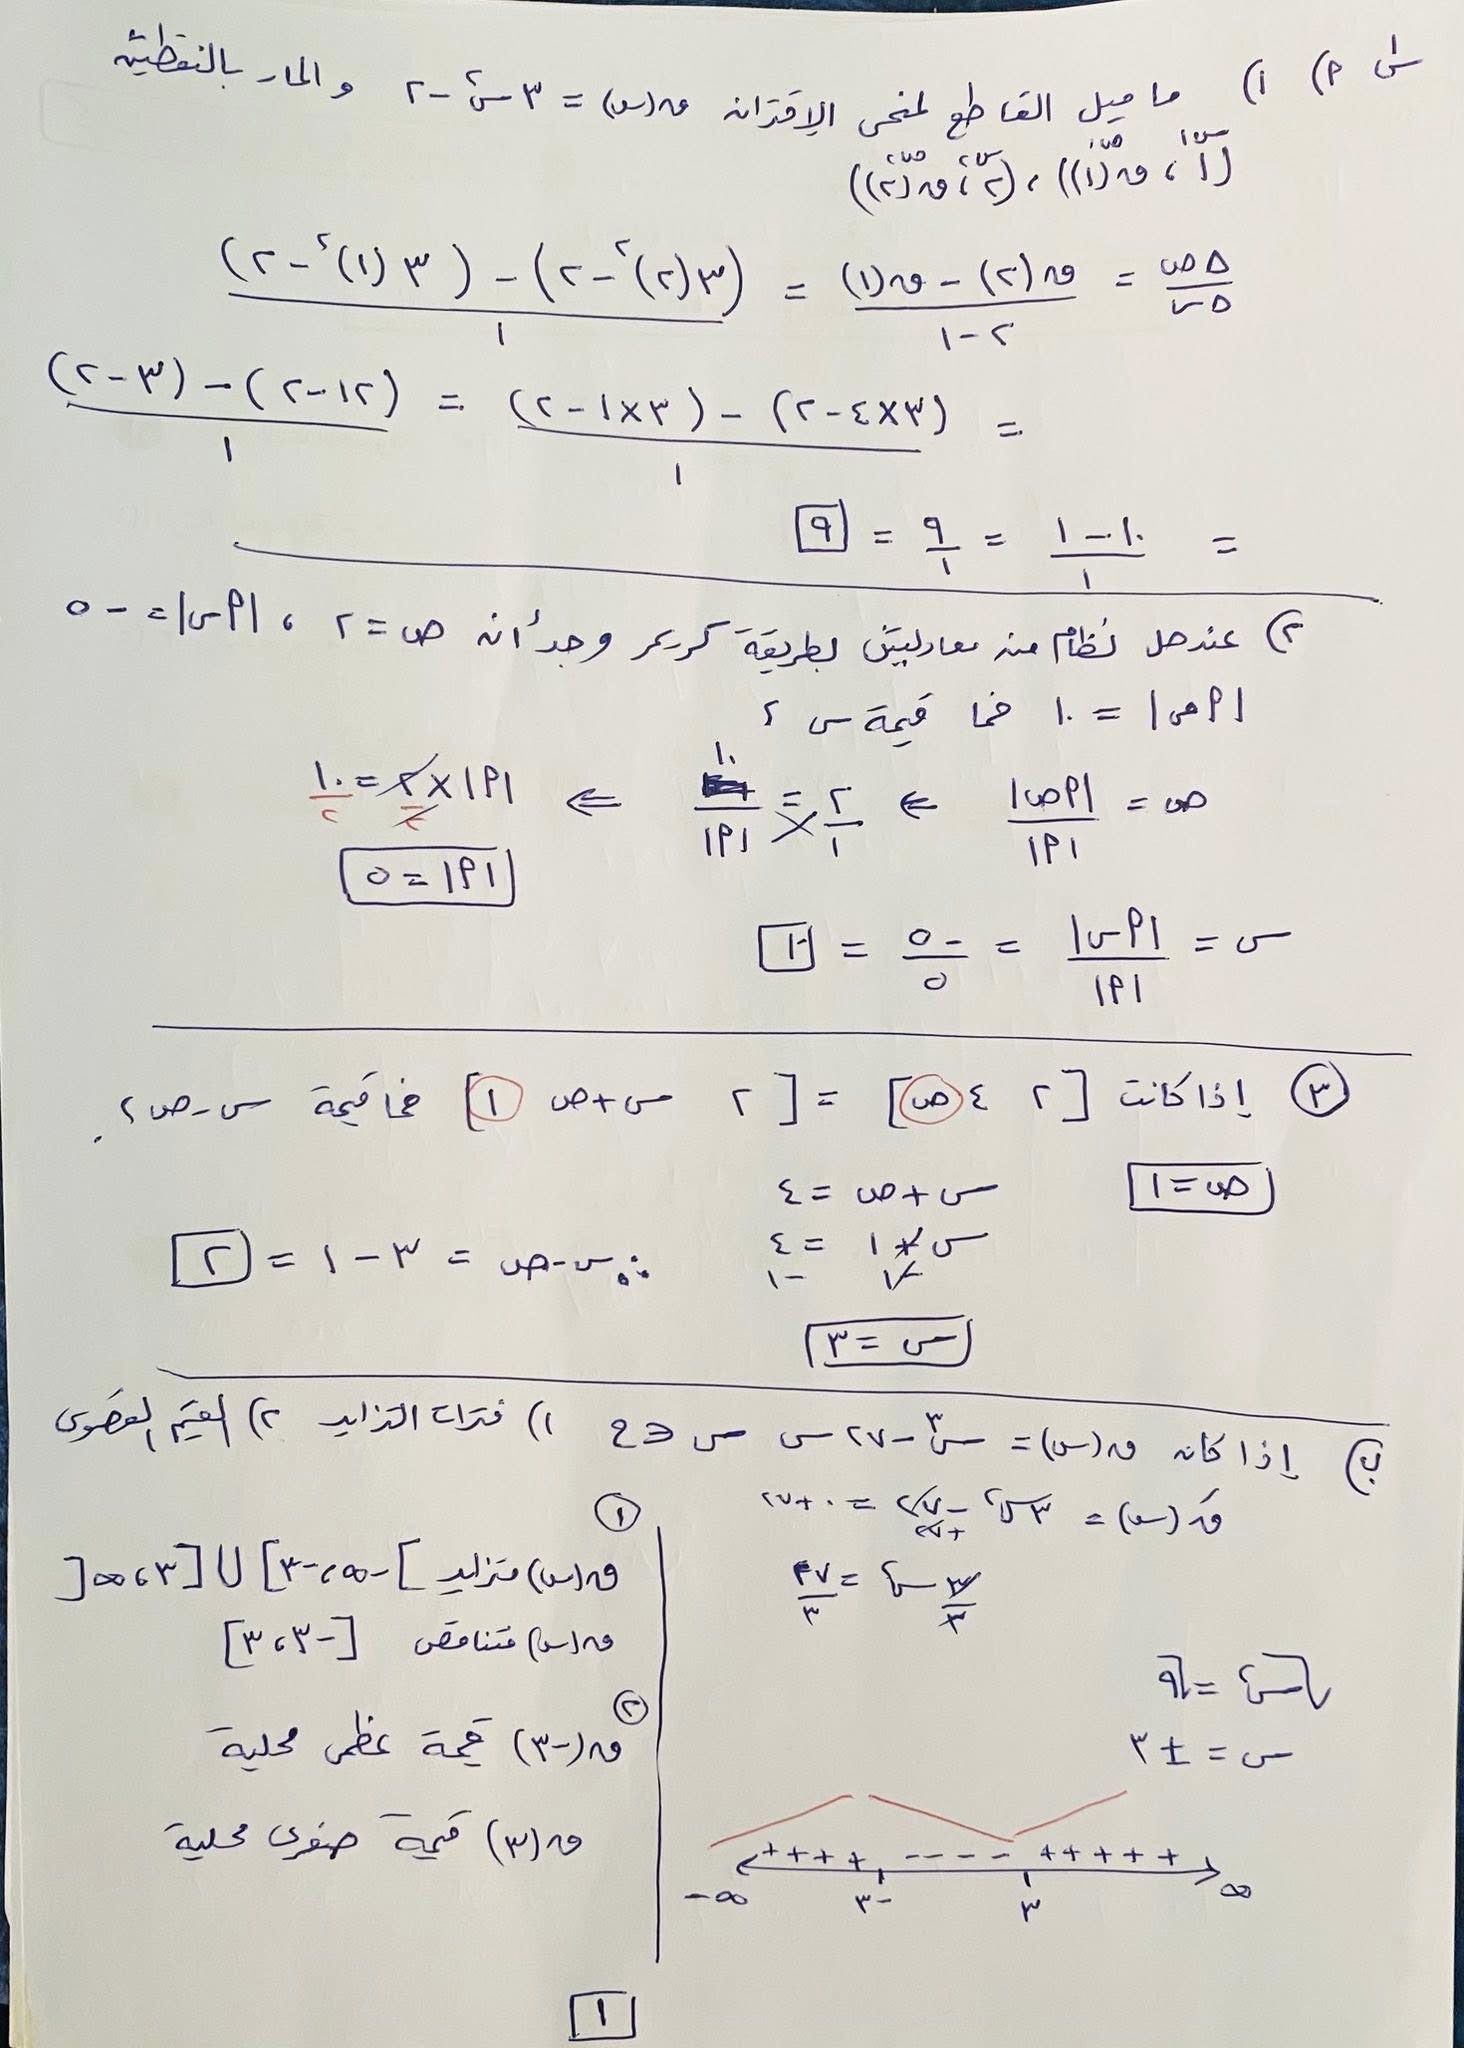 س١ م) ١) ما ميل القاطع لمنحى الإقتران ق(س) = ٣س٢ - ٢ والمار بالنقطتين
(١، ق(١))، (٢، ق(٢))
س١ ص١ س٢ ص٢
Δص/Δس = (ق(٢) - ق(١))/(٢ - ١) = ((٣(٢)٢ - ٢) - (٣(١)٢ - ٢))/١
= ((٣×٤ - ٢) - (٣×١ - ٢))/١ = ((١٢ - ٢) - (٣ - ٢))/١
= (١٠ - ١)/١ = ٩/١ = ٩
٢) عند حل نظام من معادلتين بطريقة كريمر وجد أن ص = ٢ ، |Aس| = -٥
|Aص| = ١٠ فما قيمة س ؟
ص = |Aص|/|A| ⇐ ٢/١ = ١٠/|A| ⇐ |A|×٢ = ١٠
٢ ٢
|A| = ٥
س = |Aس|/|A| = -٥/٥ = -١
٣ إذا كانت [٢ ٤ ص] = [٢ س+ص ١] فما قيمة س-ص ؟
ص = ١ س + ص = ٤
س + ١ = ٤
-١ -١
∴ س-ص = ٣ - ١ = ٢
س = ٣
ب) إذا كان ق(س) = س٣ - ٢٧س س ∈ ح ١) فترات التزايد ٢) القيم القصوى
قَ(س) = ٣س٢ - ٢٧ = ٠ + ٢٧
+٢٧
٣س٢/٣ = ٢٧/٣
√س٢ = √٩
س = ± ٣
+ + + + - - - - + + + + +
-∞ -٣ ٣ ∞
١
ق(س) متزايد ]-∞، -٣] ∪ [٣، ∞[
ق(س) متناقص [-٣، ٣]
٢
ق(-٣) قيمة عظمى محلية
ق(٣) قيمة صغرى محلية
١